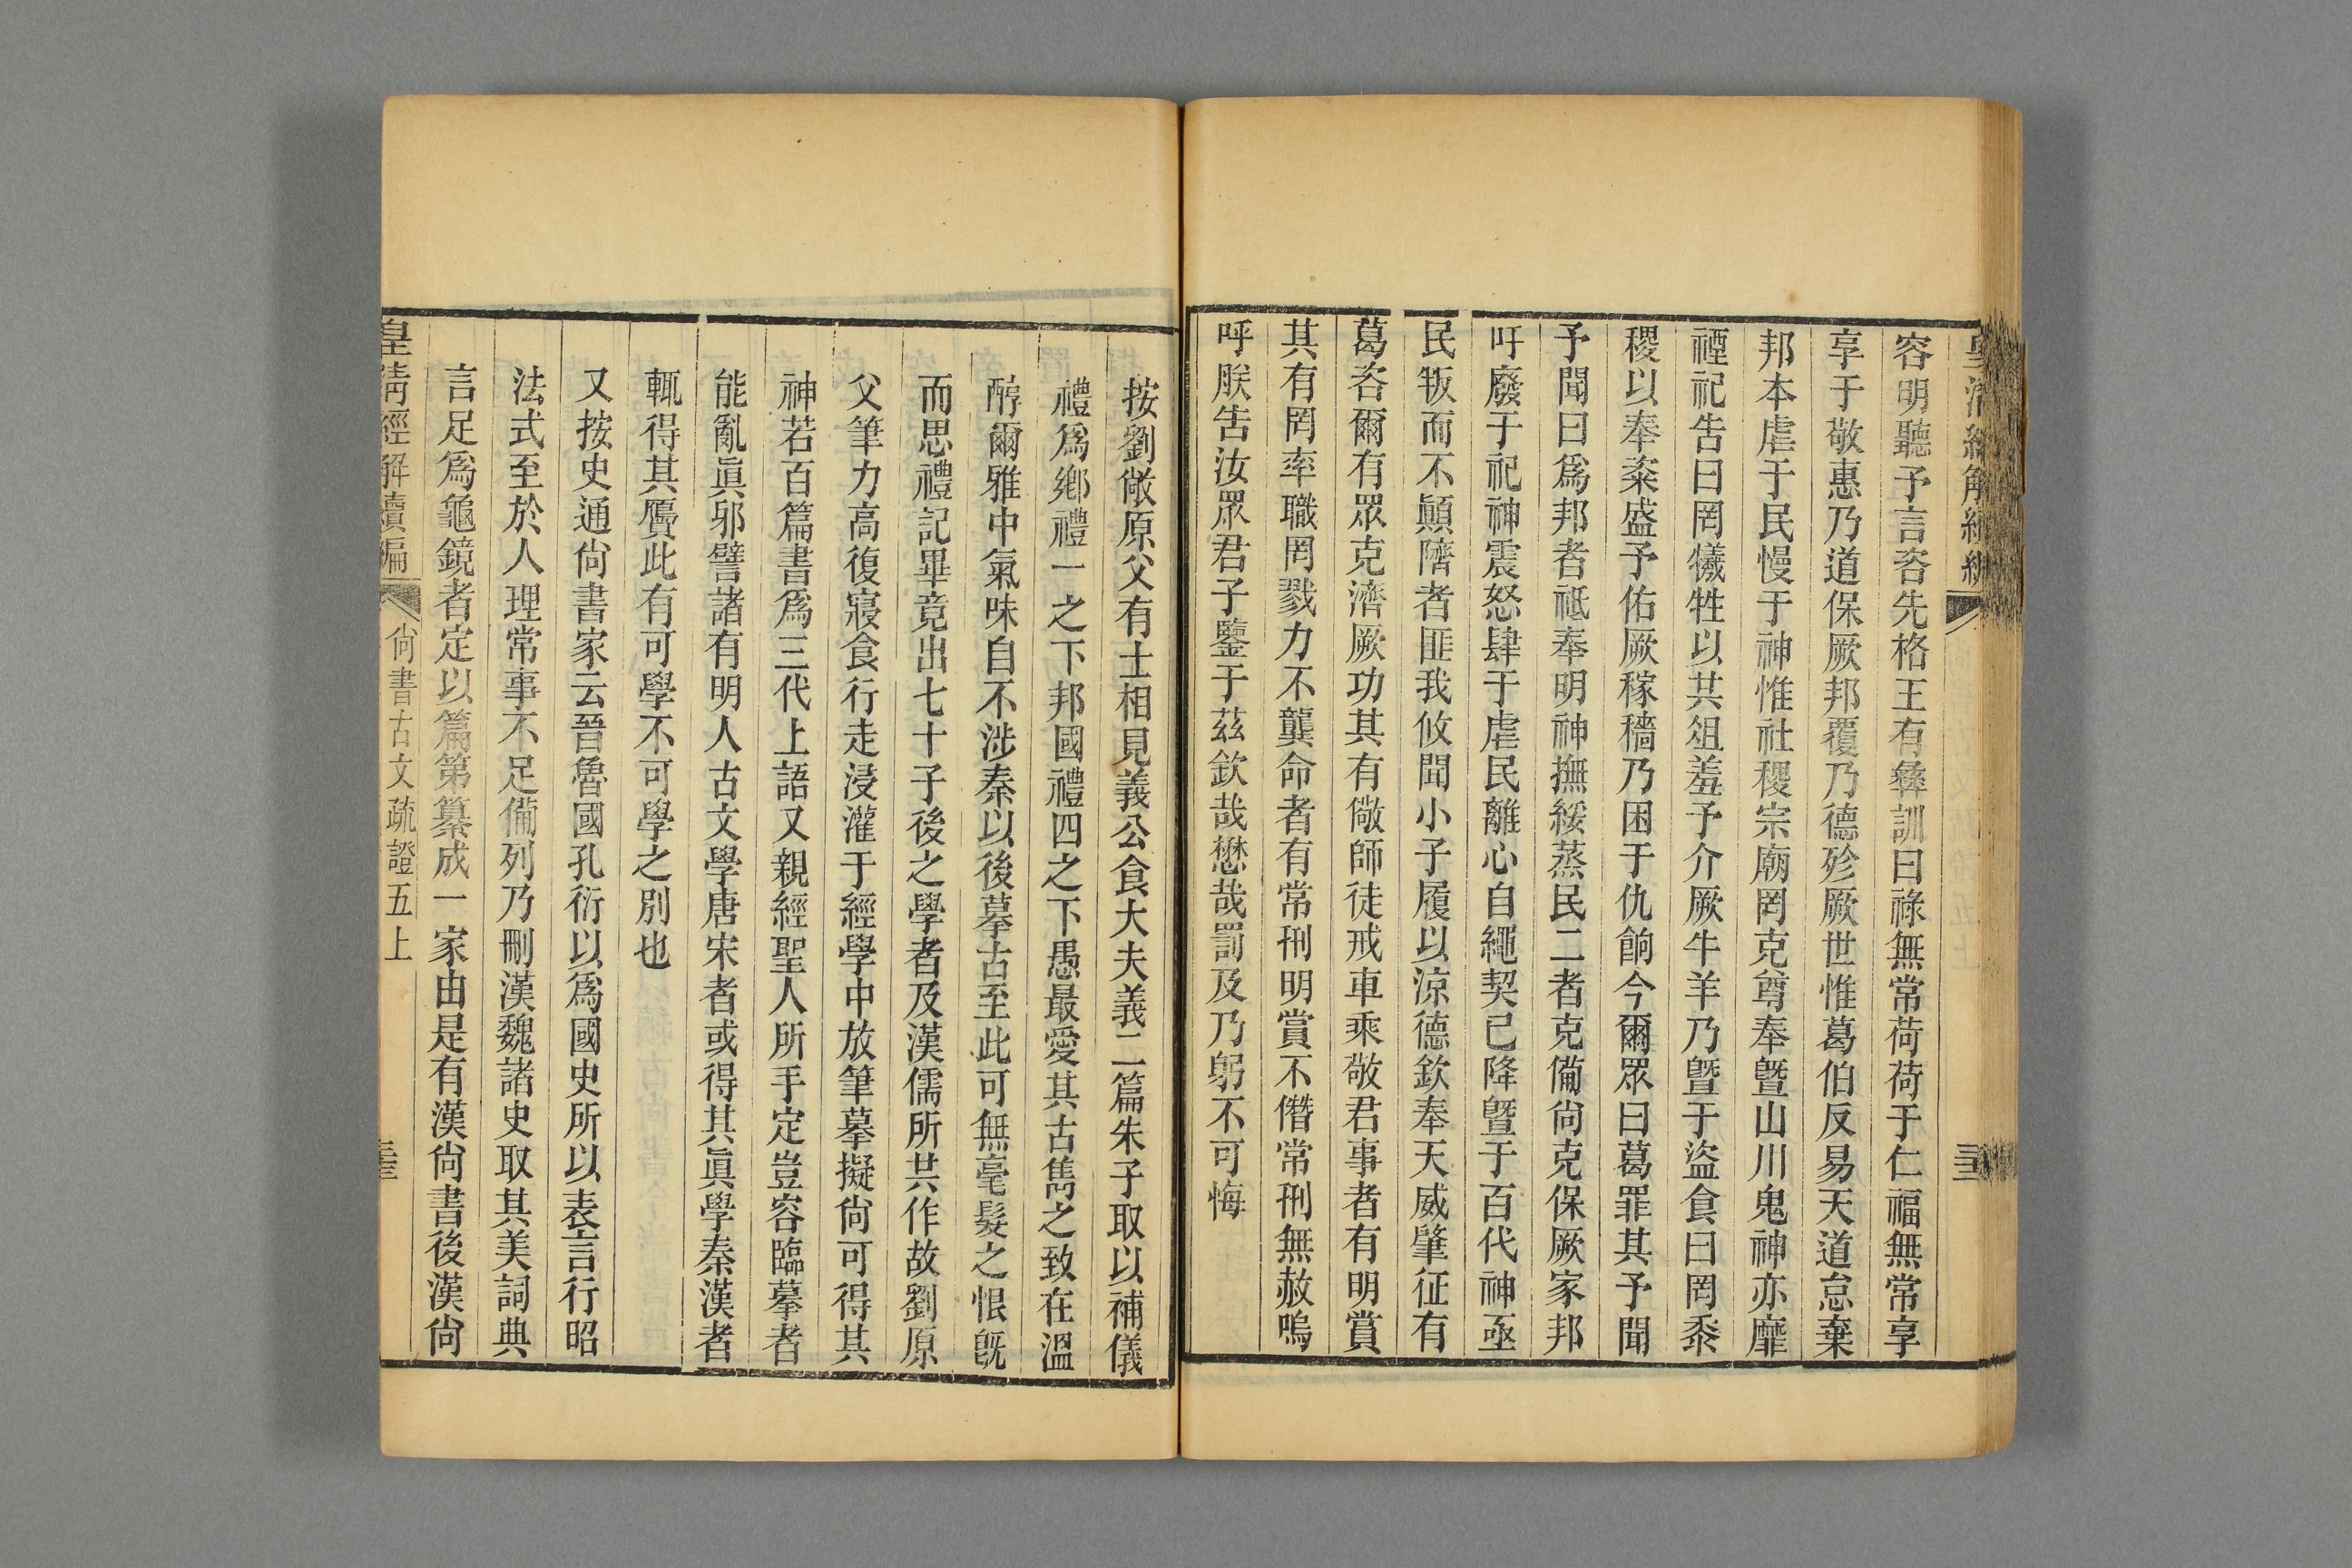 容明聽予言咨先格王有彝訓曰祿無常荷荷于仁福無常享
享于敬惠乃道保厥邦覆乃德殄厥世惟葛伯反易天道怠棄
邦本虐于民慢于神惟社稷宗廟罔克尊奉暨山川鬼神亦靡
禋祀告曰罔犧牲以其俎羞予介厥牛羊乃曁于盜食曰罔黍
稷以奉粢盛予佑厥稼穡乃困于仇餉今爾眾曰葛罪其予聞
予聞曰爲邦者祗奉明神撫綏蒸民二者克備尙克保厥家邦
吁廢于祀神震怒肆于虐民離心自繩契已降曁于百代神亟
民叛而不顚隮者匪我攸聞小子履以涼德欽奉天威肇征有
葛咨爾有眾克濟厥功其有儆師徒戒車乘敬君事者有明賞
其有罔率職罔戮力不龔命者有常刑明賞不僭常刑無赦嗚
呼朕告汝眾君子鑒于茲欽哉懋哉罰及乃躬不可悔
按劉敞原父有士相見義公食大夫義二篇朱子取以補儀
禮爲鄉禮一之下邦國禮四之下愚最愛其古雋之致在溫
醇爾雅中氣味自不涉秦以後摹古至此可無毫髮之恨旣
而思禮記畢竟出七十子後之學者及漢儒所共作故劉原
父筆力高復寢食行走浸灌于經學中放筆摹擬尙可得其
神若百篇書爲三代上語又親經聖人所手定豈容臨摹者
能亂眞邪譬諸有明人古文學唐宋者或得其眞學秦漢者
輒得其贋此有可學不可學之別也
又按史通尙書家云晉魯國孔衍以爲國史所以表言行昭
法式至於人理常事不足備列乃刪漢魏諸史取其美詞典
言足爲龜鏡者定以篇第纂成一家由是有漢尙書後漢尙
皇淸經解續編
尙書古文疏證五上